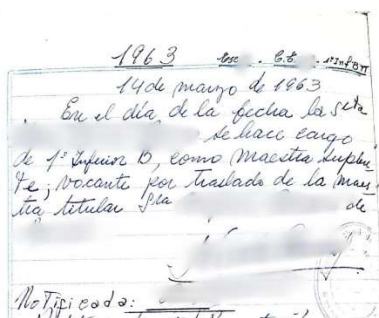 1963 Esc. C.E. 1º Inf "B" TT
14 de marzo de 1963
En el día de la fecha la Srta
se hace cargo
de 1º Inferior B, como maestra suplen-
te; vacante por traslado de la maes-
tra titular Sra de
Notificada: